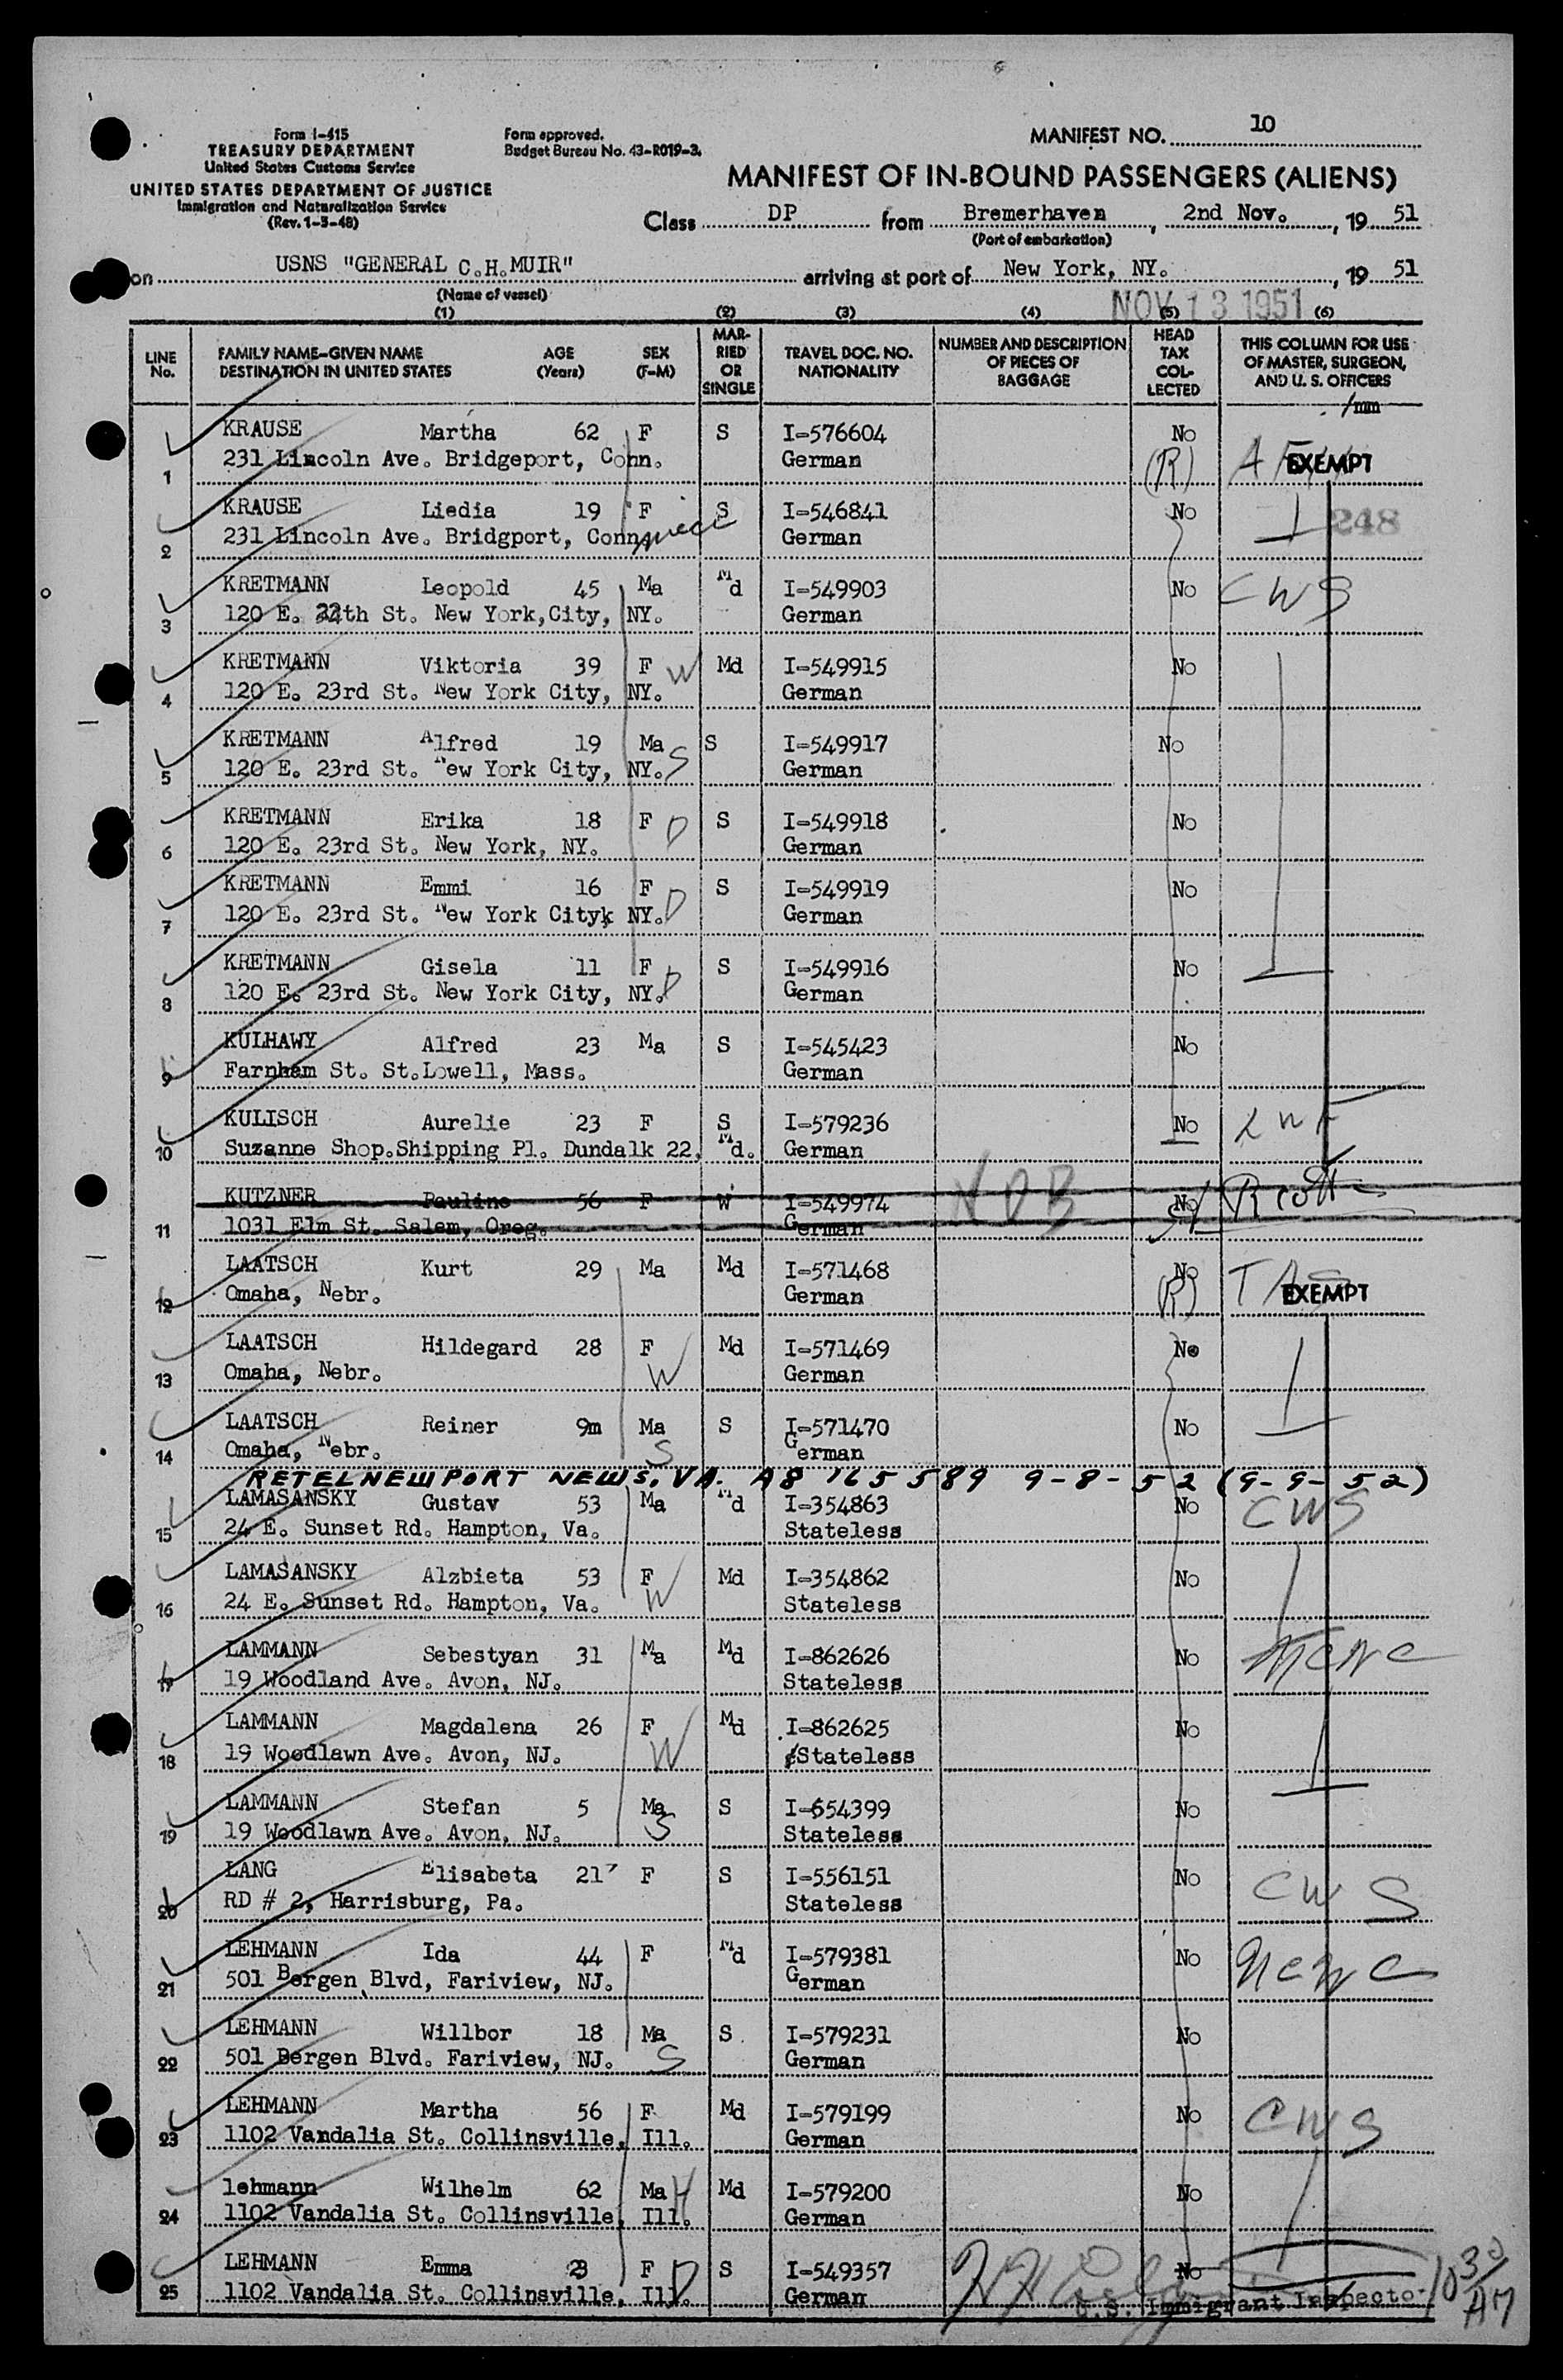 MANIFEST NO. 10
Form I-415
TREASURY DEPARTMENT
United States Customs Service
UNITED STATES DEPARTMENT OF JUSTICE
Immigration and Naturalization Service
(Rev. 1-3-48)
Form approved.
Budget Bureau No. 43-R019-3.
MANIFEST OF IN-BOUND PASSENGERS (ALIENS)
Class DP from Bremerhaven, 2nd Nov., 19 51
(Port of embarkation)
on USNS "GENERAL C.H.MUIR" arriving at port of New York, NY., 19 51
(Name of vessel)
NOV 13 1951
(1) (2) (3) (4) (5) (6)
LINE No. FAMILY NAME-GIVEN NAME DESTINATION IN UNITED STATES AGE (Years) SEX (F-M) MARRIED OR SINGLE TRAVEL DOC. NO. NATIONALITY NUMBER AND DESCRIPTION OF PIECES OF BAGGAGE HEAD TAX COLLECTED THIS COLUMN FOR USE OF MASTER, SURGEON, AND U. S. OFFICERS
/mm
KRAUSE Martha 62 F S I-576604 No
1 231 Lincoln Ave. Bridgeport, Conn. German (R) EXEMPT
KRAUSE Liedia 19 F S I-546841 No 248
2 231 Lincoln Ave. Bridgport, Conn. niece German
KRETMANN Leopold 45 Ma Md I-549903 No CWS
3 120 E. 22th St. New York,City, NY. German
KRETMANN Viktoria 39 F W Md I-549915 No
4 120 E. 23rd St. New York City, NY. German
KRETMANN Alfred 19 Ma S S I-549917 No
5 120 E. 23rd St. New York City, NY. German
KRETMANN Erika 18 F D S I-549918 No
6 120 E. 23rd St. New York, NY. German
KRETMANN Emmi 16 F D S I-549919 No
7 120 E. 23rd St. New York Cityk NY. German
KRETMANN Gisela 11 F D S I-549916 No
8 120 E. 23rd St. New York City, NY. German
KULHAWY Alfred 23 Ma S I-545423 No
9 Farnham St. St.Lowell, Mass. German
KULISCH Aurelie 23 F S I-579236 No LWF
10 Suzanne Shop.Shipping Pl. Dundalk 22, Md. German
KUTZNER Pauline 56 F W I-549974 NOB No
11 1031 Elm St. Salem, Oreg. German
LAATSCH Kurt 29 Ma Md I-571468 No
12 Omaha, Nebr. German (R) EXEMPT
LAATSCH Hildegard 28 F Md I-571469 No
13 Omaha, Nebr. W German
LAATSCH Reiner 9m Ma S I-571470 No
14 Omaha, Nebr. S German
RETEL NEWPORT NEWS, VA. A8 165589 9-8-52 (9-9-52)
LAMASANSKY Gustav 53 Ma Md I-354863 No CWS
15 24 E. Sunset Rd. Hampton, Va. Stateless
LAMASANSKY Alzbieta 53 F Md I-354862 No
16 24 E. Sunset Rd. Hampton, Va. W Stateless
LAMMANN Sebestyan 31 Ma Md I-862626 No NCWC
17 19 Woodland Ave. Avon, NJ. Stateless
LAMMANN Magdalena 26 F Md I-862625 No
18 19 Woodlawn Ave. Avon, NJ. W Stateless
LAMMANN Stefan 5 Ma S I-654399 No
19 19 Woodlawn Ave. Avon, NJ. S Stateless
LANG Elisabeta 21 F S I-556151 No CWS
20 RD # 2, Harrisburg, Pa. Stateless
LEHMANN Ida 44 F Md I-579381 No NCWC
21 501 Bergen Blvd, Fariview, NJ. German
LEHMANN Willbor 18 Ma S I-579231 No
22 501 Bergen Blvd. Fariview, NJ. S German
LEHMANN Martha 56 F Md I-579199 No CWS
23 1102 Vandalia St. Collinsville, Ill. German
lehmann Wilhelm 62 Ma H Md I-579200 No
24 1102 Vandalia St. Collinsville, Ill. German
LEHMANN Emma 23 F D S I-549357 No
25 1102 Vandalia St. Collinsville, Ill. German
U.S. Immigrant Inspector
10 30/AM